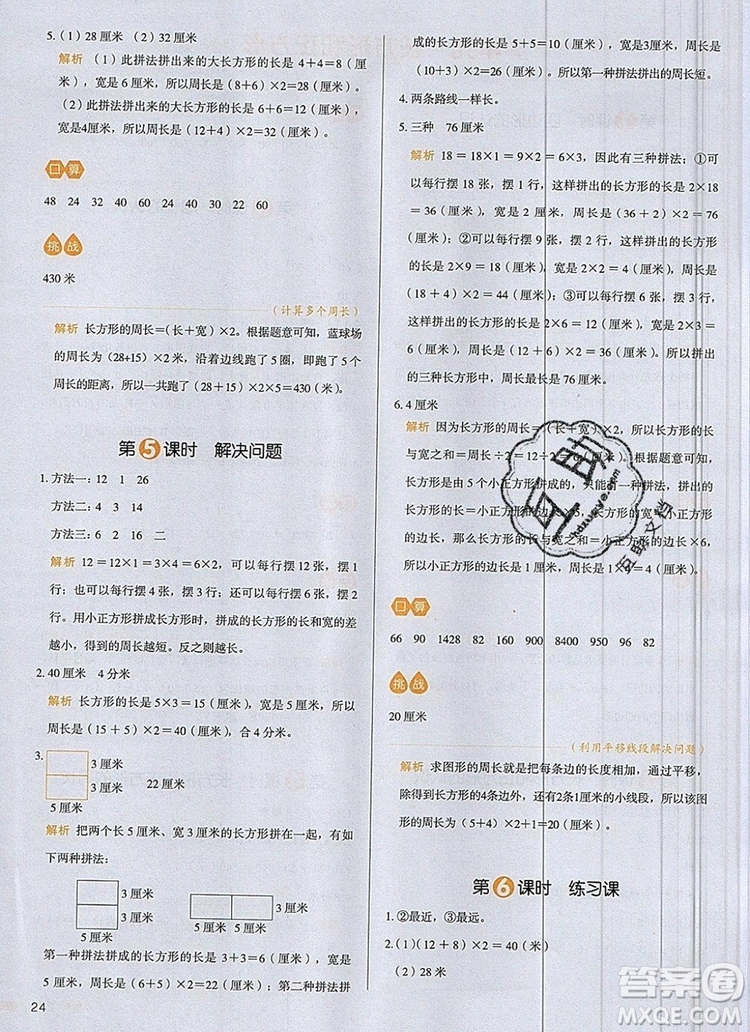 5. (1) 28 厘米 (2) 32 厘米
解析 (1)此拼法拼出来的大长方形的长是 4+4=8(厘
米),宽是6厘米,所以周长是(8+6)×2=28(厘米)。
(2)此拼法拼出来的大长方形的长是 6+6=12(厘米),
宽是4厘米,所以周长是(12+4)×2=32(厘米)。
口算
48 24 32 40 60 24 30 22 60
挑战
430 米
(计算多个周长)
解析 长方形的周长=(长+宽)×2。根据题意可知,蓝球场
的周长为(28+15)×2米,沿着边线跑了5圈,即跑了5个
周长的距离,所以一共跑了(28+15)×2×5=430(米)。
第5课时 解决问题
1. 方法一: 12 1 26
方法二: 4 3 14
方法三: 6 2 16
解析 12=12×1=4×3=6×2,可以每行摆12张,摆1
行;也可以每行摆4张,摆3行;还可以每行摆6张,摆2
行。用小正方形拼成长方形时,拼成的长方形的长和宽的差
越小,周长越短。反之则越长。
2. 40 厘米 4 分米
解析 长方形的长是5×3=15(厘米),宽是5厘米,所以
周长是(15+5)×2=40(厘米),合4分米。
3.
3 厘米
3 厘米
5 厘米
22 厘米
解析 把两个长5厘米、宽3厘米的长方形拼在一起,有
如下两种拼法:
3 厘米
3 厘米
5 厘米
3 厘米
5厘米 5厘米
第一种拼法拼成的长方形的长是 3+3=6(厘米),宽是
5厘米,周长是(6+5)×2=22(厘米);第二种拼法拼
24
成的长方形的长是 5+5=10(厘米),宽是3厘米,周长是
(10+3)×2=26(厘米),所以第一种拼出来的周长短。
4. 两条路线一样长。
5. 三种 76 厘米
解析 18=18×1=9×2=6×3,因此有三种拼法:①
可以每行摆18张,摆1行,这样拼出的长方形的长是2×18
=36(厘米),宽是2厘米,周长是(36+2)×2=76(厘
米);②可以每行摆9张,摆2行,这样拼出的长方形
的长是2×9=18(厘米),宽是2×2=4(厘米),周长是
(18+4)×2=44(厘米);③可以每行摆6张,摆3行,
这样拼出的长方形的长是2×6=12(厘米),宽是2×3=
6(厘米),周长是(12+6)×2=36(厘米)。所以拼出
的三种长方形中,周长最长是76厘米。
6. 4 厘米
解析 因为长方形的周长=(长+宽)×2,所以长方形的长
与宽之和=周长÷2=12÷2=6(厘米),即长与宽的和是
6厘米。因为是由5个小正方形拼成的,只能有一种拼法,即
拼成的大长方形的长是小正方形边长的5倍,宽是小正方形的
边长,那么长方形的长与宽之和=小正方形边长×6=6厘米,
所以小正方形边长是1厘米,周长是1×4=4(厘米)。
口算
66 90 1428 82 160 1800 8400 950 96 82
挑战
20 厘米
(利用平移线段解决问题)
解析 求图形的周长就是求每条边的长度和。通过平移,
除得到长和宽外,还剩余2条2厘米的小线段,所以这个图形
的周长为(5+4)×2+2=20(厘米)。
第6课时 练习课
1. ②最近,③最远。
2. (1)(12+8)×2=40(米)
(2)28 米
互助
hdzuoye.com
互助文档
答案圈
MXQE.COM